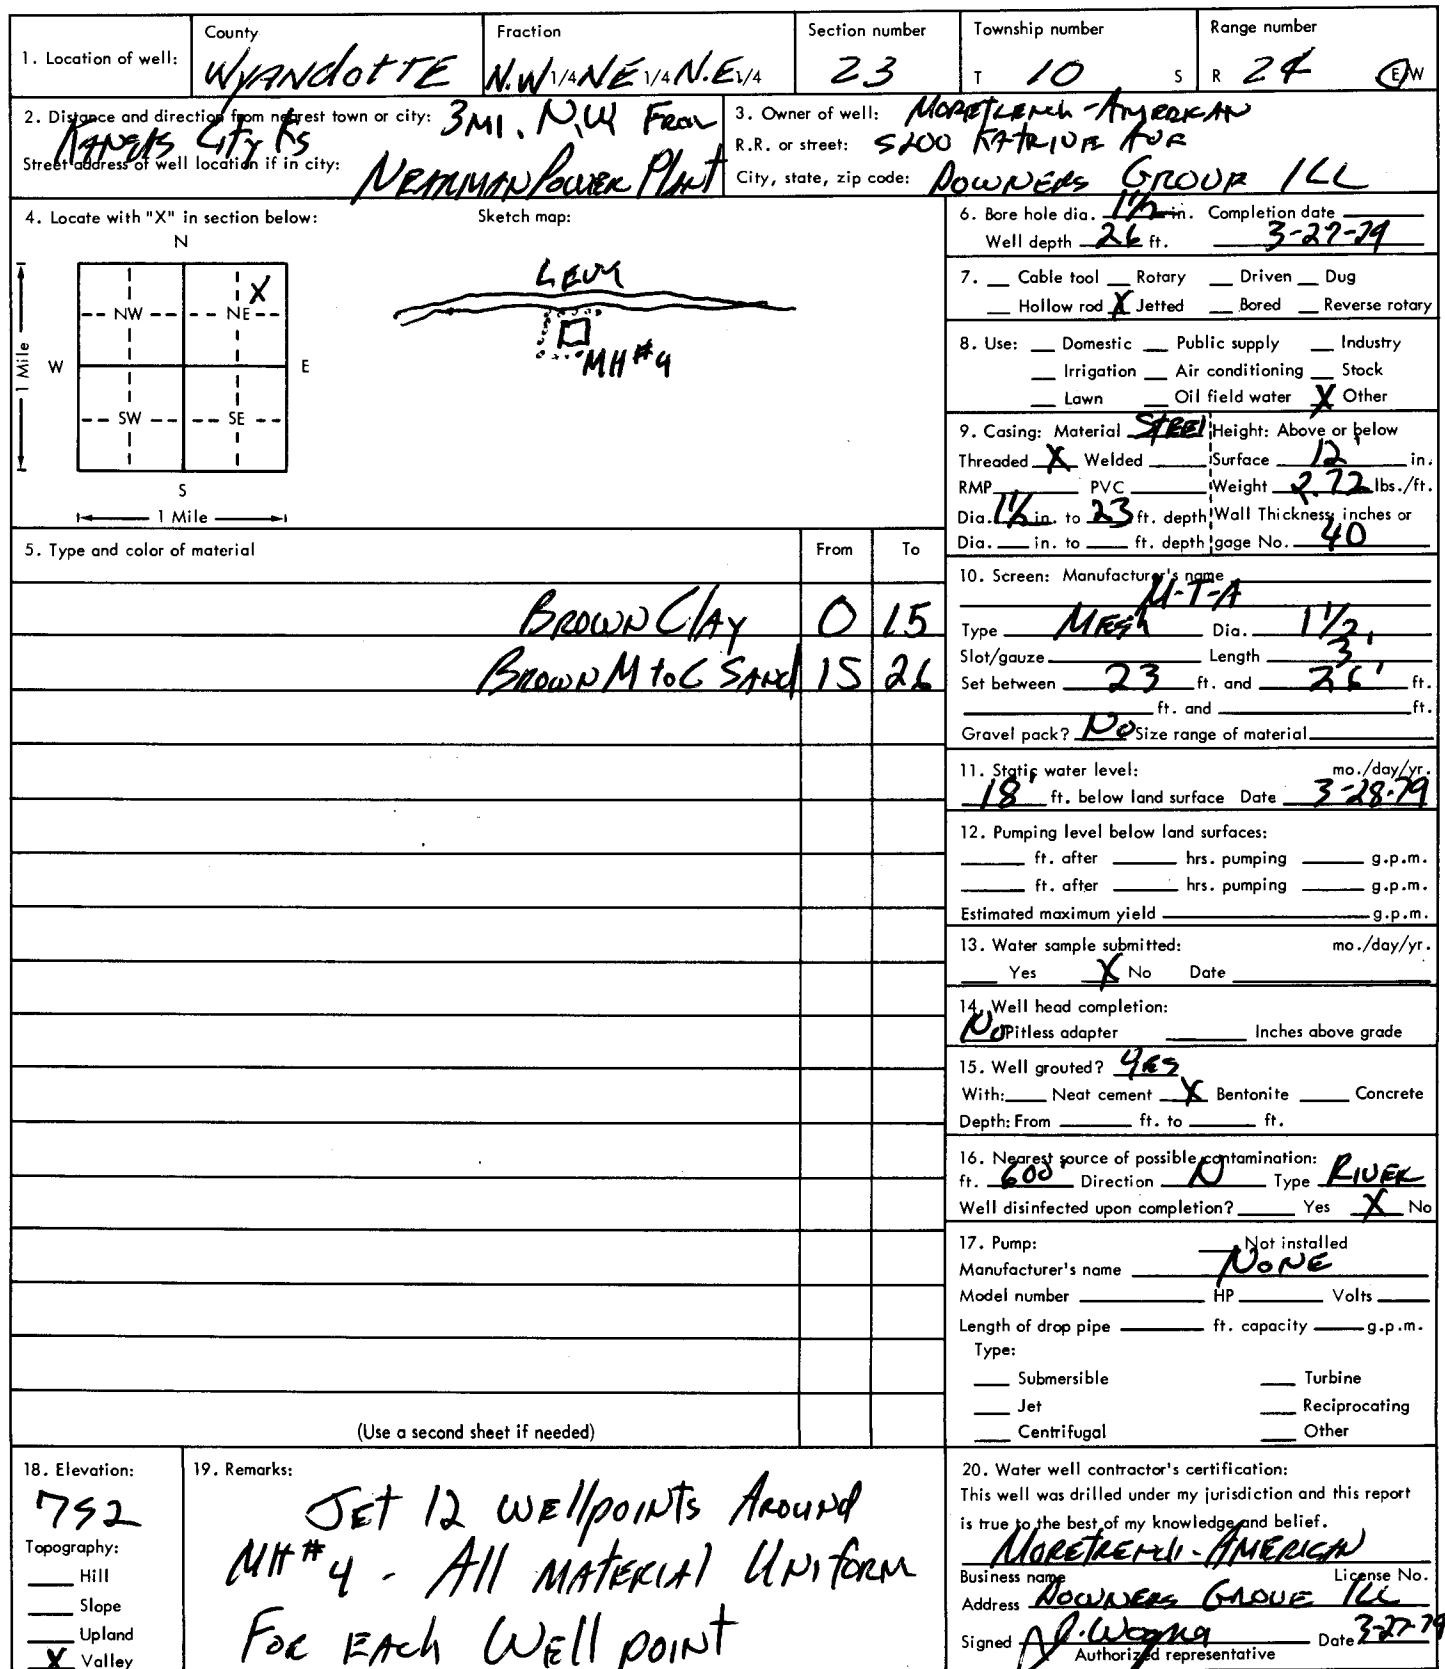 1. Location of well: County WYANDOTTE Fraction N.W 1/4 NE 1/4 N.E 1/4 Section number 23 Township number T 10 S Range number R 24 E/W
2. Distance and direction from nearest town or city: 3 MI. N.W From
KANSAS City Ks
Street address of well location if in city: NEARMAN POWER PLANT
3. Owner of well: MORETRENCH-AMERICAN
R.R. or street: 5200 KATRINE AVE
City, state, zip code: DOWNERS GROVE ILL
4. Locate with "X" in section below:
N
X
NW NE
W E
SW SE
S
1 Mile
1 Mile
Sketch map:
LEVY
MH #4
5. Type and color of material From To
BROWN CLAY 0 15
BROWN M to C SAND 15 26
(Use a second sheet if needed)
6. Bore hole dia. 1 1/2 in. Completion date
Well depth 26 ft. 3-27-79
7. Cable tool Rotary Driven Dug
Hollow rod X Jetted Bored Reverse rotary
8. Use: Domestic Public supply Industry
Irrigation Air conditioning Stock
Lawn Oil field water X Other
9. Casing: Material STEEL Height: Above or below
Threaded X Welded Surface 12' in.
RMP PVC Weight 2.72 lbs./ft.
Dia. 1 1/2 in. to 23 ft. depth Wall Thickness: inches or
Dia. in. to ft. depth gage No. 40
10. Screen: Manufacturer's name
M-T-A
Type MESH Dia. 1 1/2
Slot/gauze Length 3'
Set between 23 ft. and 26' ft.
ft. and ft.
Gravel pack? No Size range of material
11. Static water level: mo./day/yr.
18' ft. below land surface Date 3-28-79
12. Pumping level below land surfaces:
ft. after hrs. pumping g.p.m.
ft. after hrs. pumping g.p.m.
Estimated maximum yield g.p.m.
13. Water sample submitted: mo./day/yr.
Yes X No Date
14. Well head completion:
No Pitless adapter Inches above grade
15. Well grouted? YES
With: Neat cement X Bentonite Concrete
Depth: From ft. to ft.
16. Nearest source of possible contamination:
ft. 600' Direction N Type RIVER
Well disinfected upon completion? Yes X No
17. Pump: Not installed
Manufacturer's name NONE
Model number HP Volts
Length of drop pipe ft. capacity g.p.m.
Type:
Submersible Turbine
Jet Reciprocating
Centrifugal Other
18. Elevation:
752
Topography:
Hill
Slope
Upland
X Valley
19. Remarks:
JET 12 WELLPOINTS AROUND
MH #4 - All MATERIAL UNIFORM
FOR EACH WELL POINT
20. Water well contractor's certification:
This well was drilled under my jurisdiction and this report
is true to the best of my knowledge and belief.
MORETRENCH-AMERICAN
Business name License No.
Address DOWNERS GROVE ILL
Signed Date 3-27-79
Authorized representative